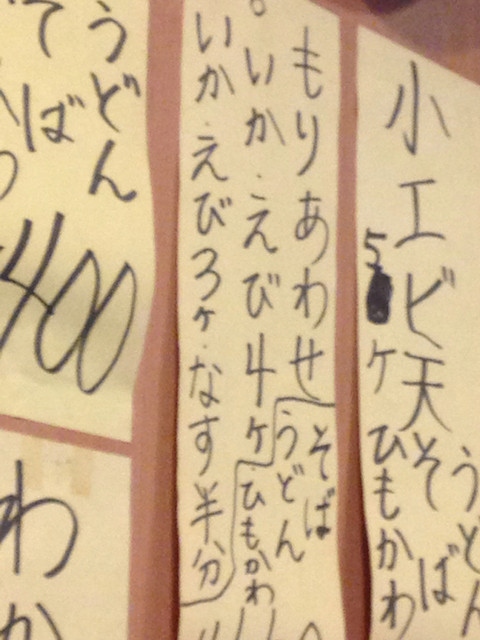 小エビ天
5ケ
うどん
そば
ひもかわ
もりあわせ
・いか・えび4ケ
いか・えび3ケ・なす半分
そば
うどん
ひもかわ
うどん
そば
400
わか